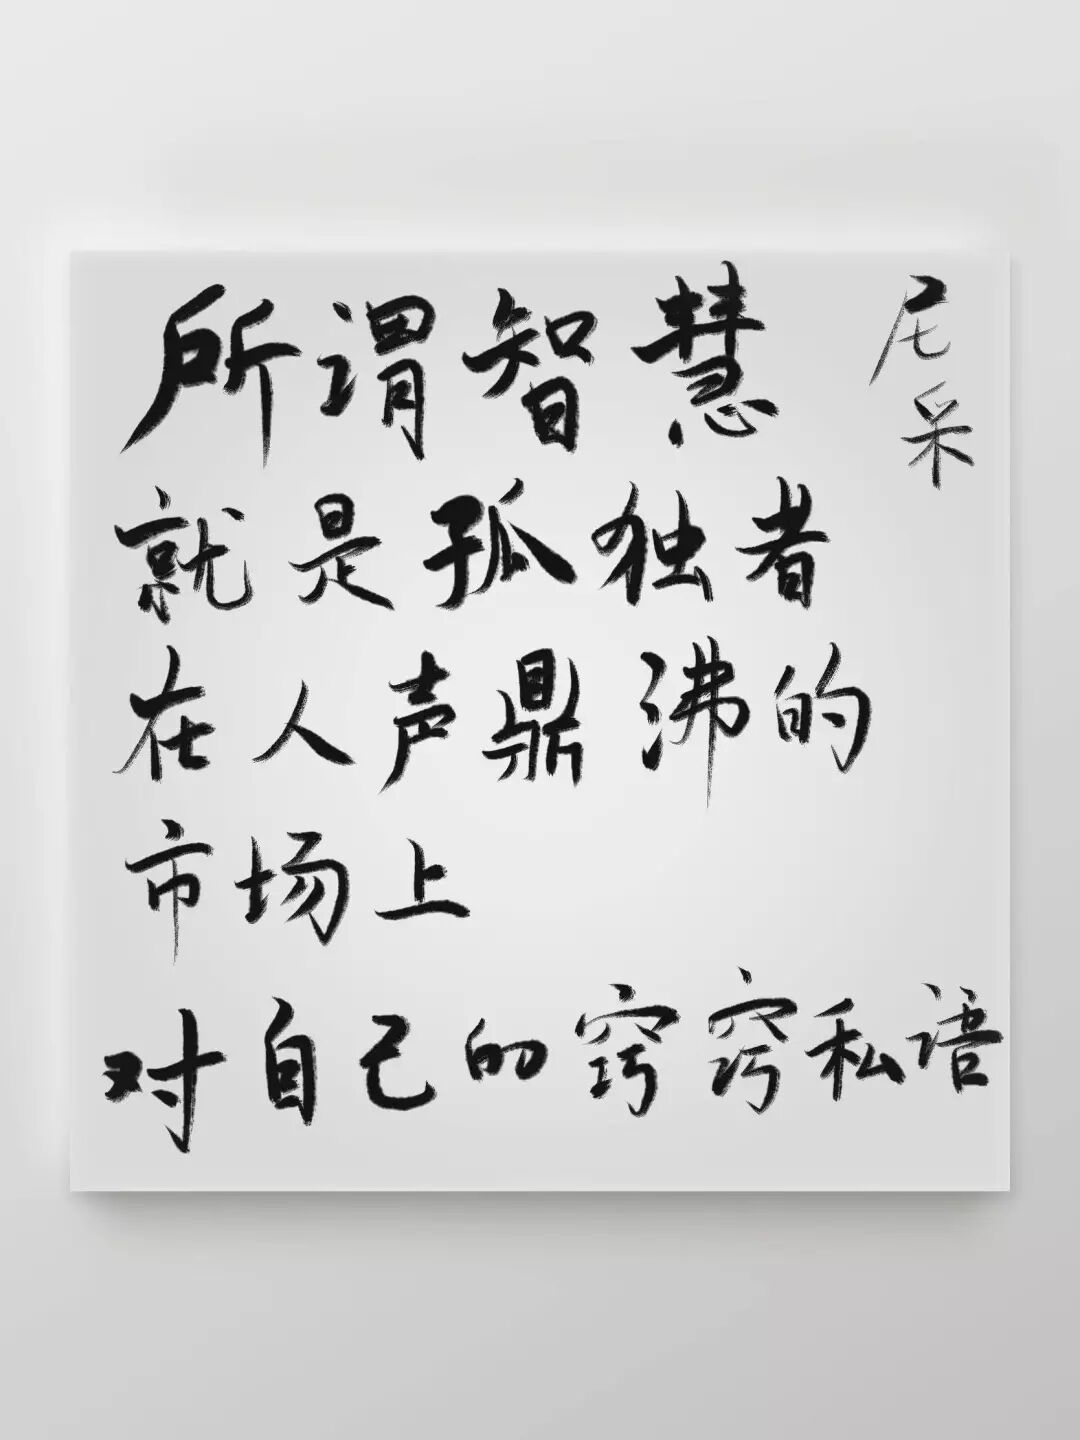 所谓智慧
就是孤独者
在人声鼎沸的
市场上
对自己的窃窃私语
尼采